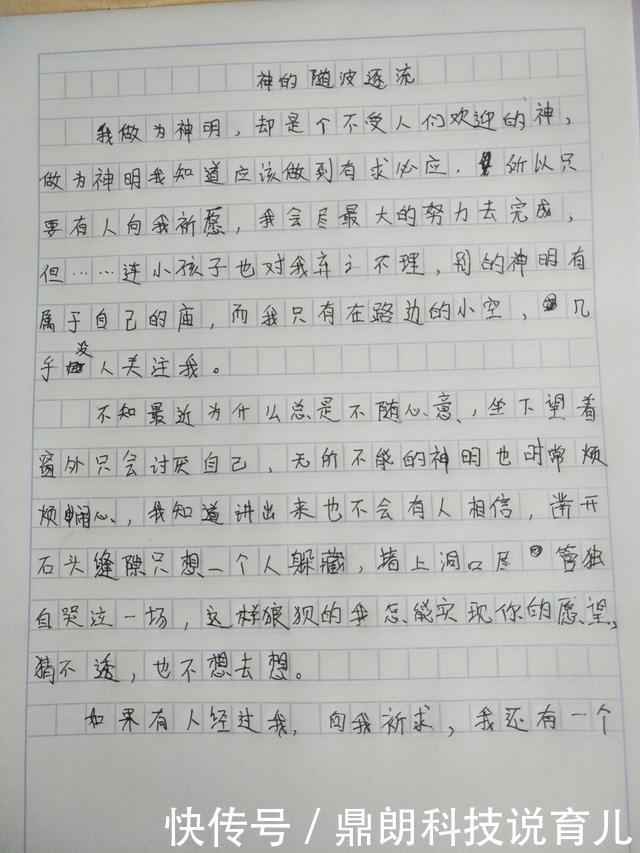 神的随波逐流
我做为神明，却是个不受人们欢迎的神，
做为神明我知道应该做到有求必应．所以只
要有人向我祈愿，我会尽最大的努力去完成，
但……连小孩子也对我弃之不理，别的神明有
属于自己的庙，而我只有在路边的小空，几
乎没人关注我。
不知最近为什么总是不随心意，坐下望着
窗外只会讨厌自己，无所不能的神明也时常烦
烦心，我知道讲出来也不会有人相信，凿开
石头缝隙只想一个人躲藏，墙上洞口尽管独
自哭泣一场，这样狼狈的我怎能实现你的愿望，
猜不透，也不想去想。
如果有人经过我，向我祈求，我还有一个
快传号/鼎朗科技说育儿